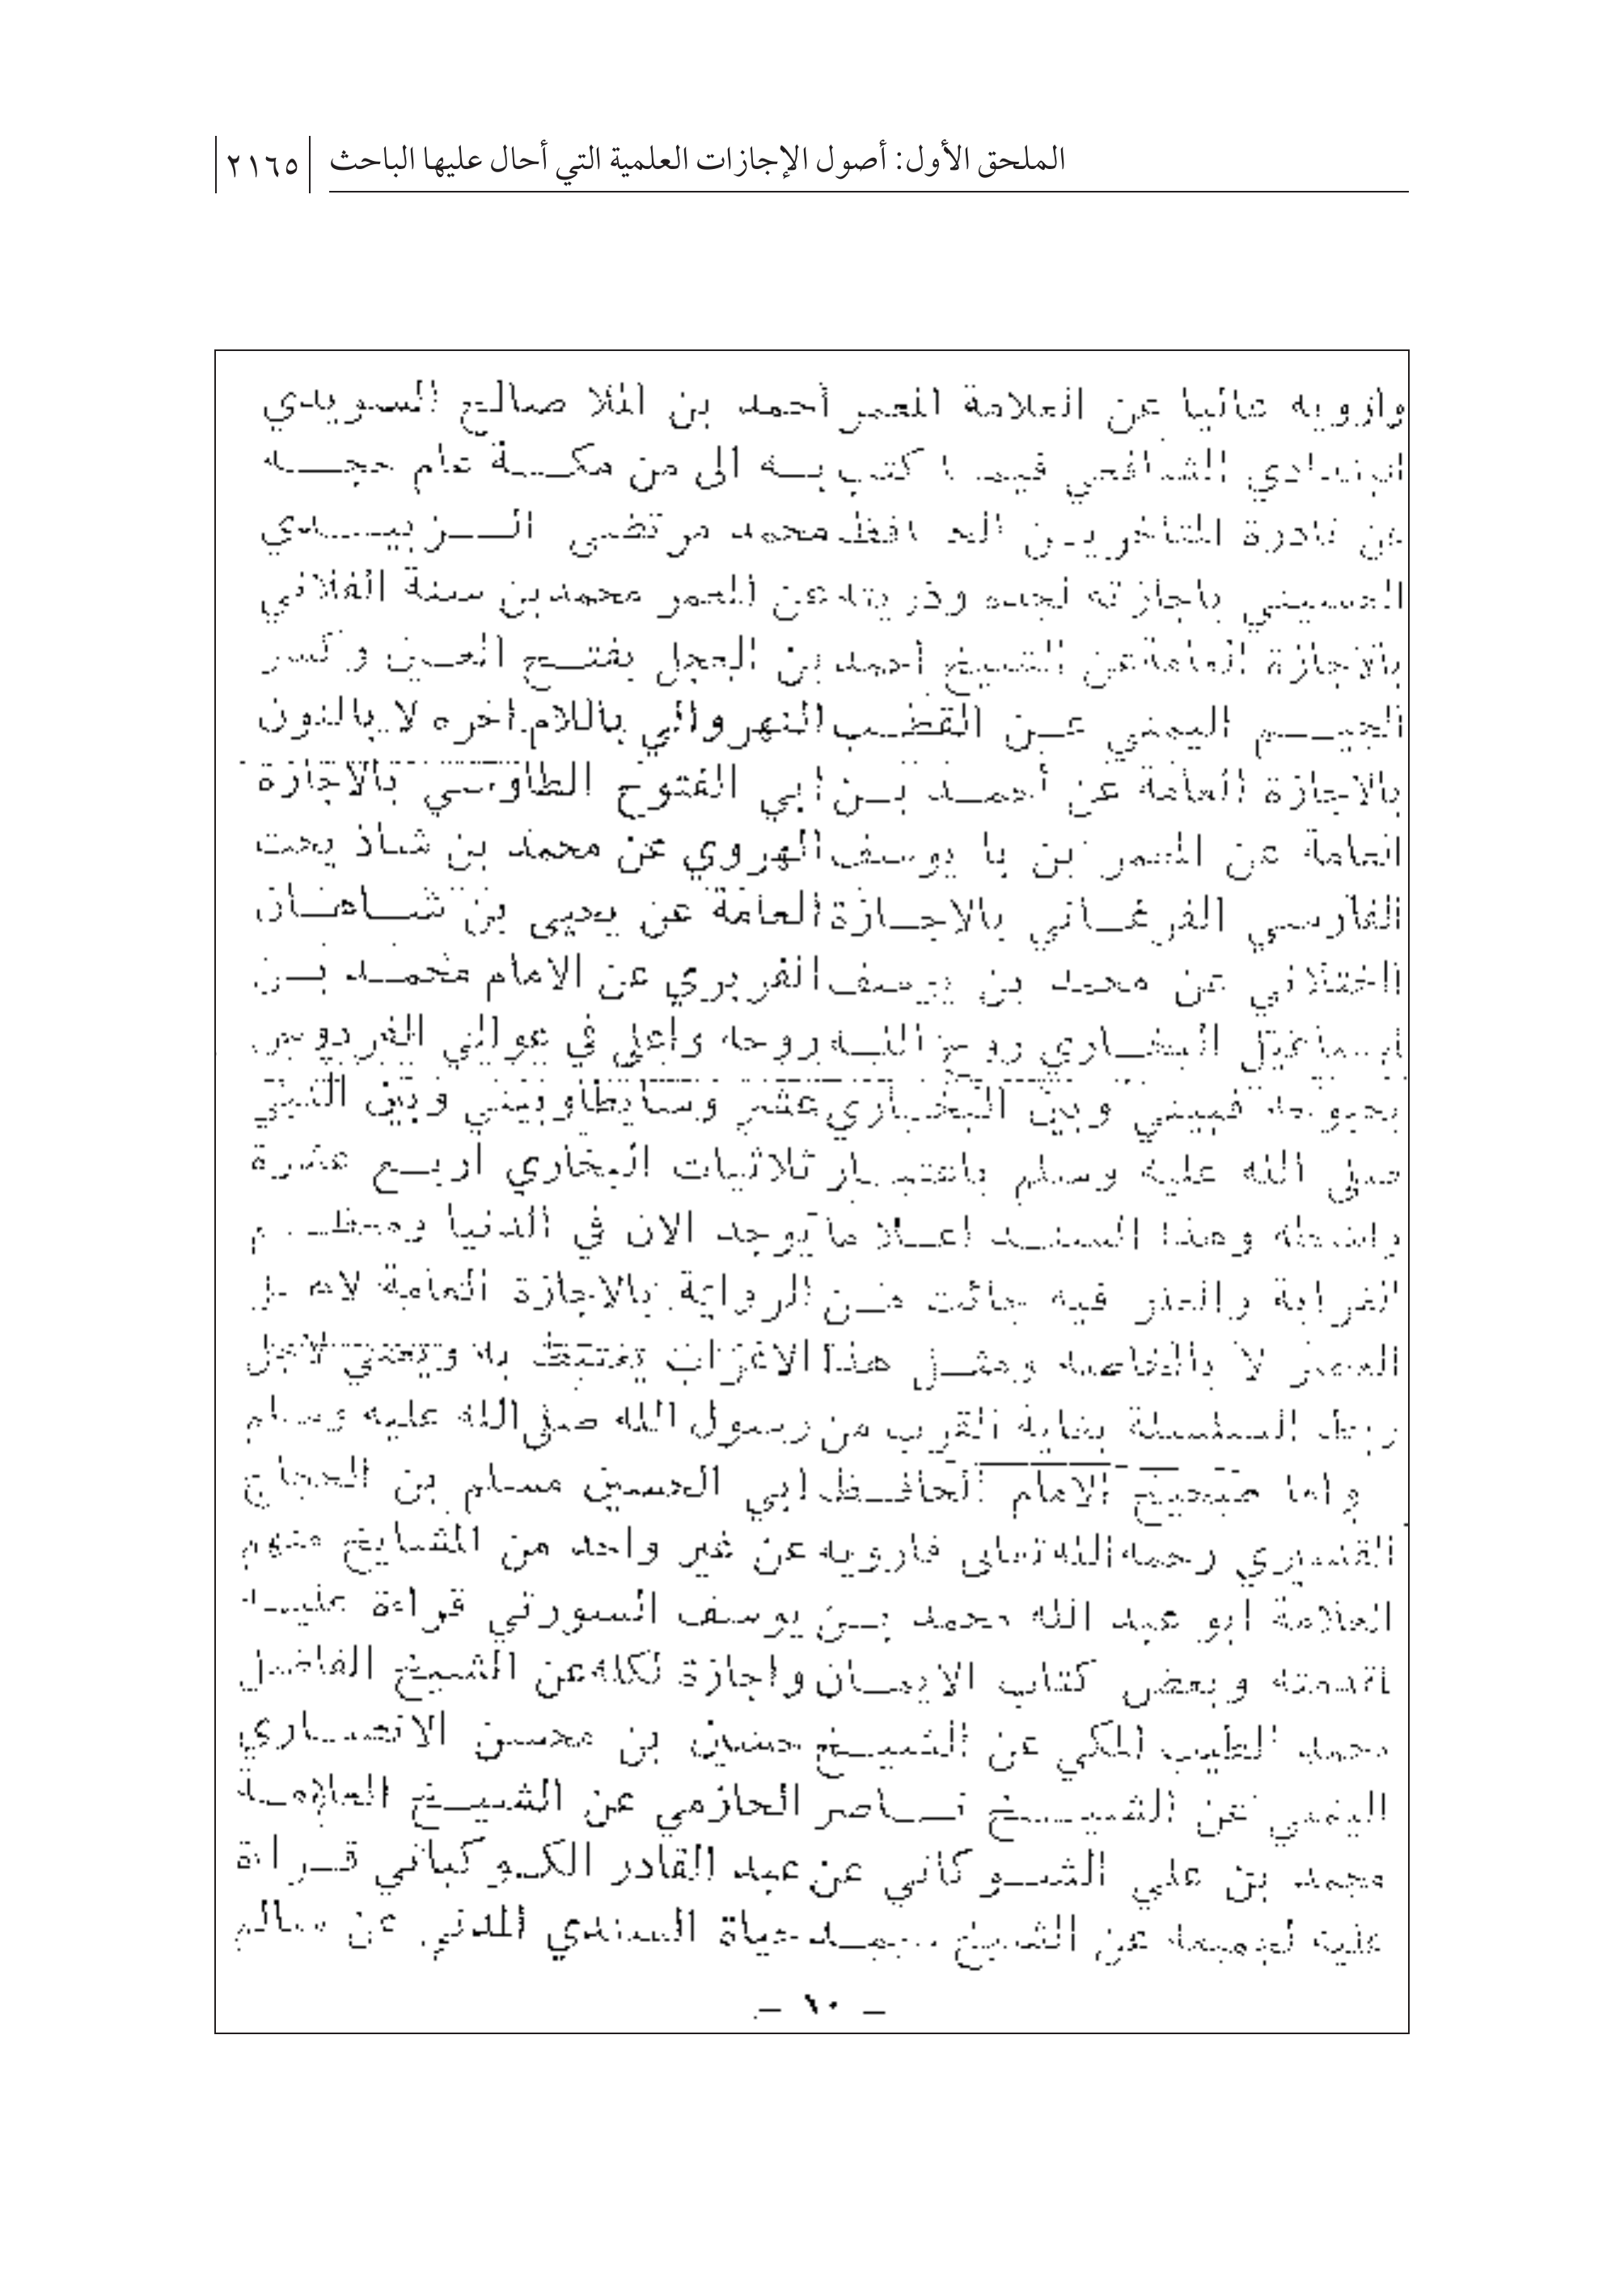 الملحق الأول: أصول الإجازات العلمية التي أحال عليها الباحث ٢١٦٥
وارويه عاليا عن العلامة المعمر أحمد بن الملا صالح السويدي
البغدادي الشافعي فيما كتب به الى من مكة عام حجه
عن نادرة المتاخرين الحافظ محمد مرتضى الزبيدي
الحسيني باجازته لجده وذريته عن المعمر محمد بن سنة الفلاني
بالاجازة العامة عن الشيخ احمد بن العجل بفتح العين وكسر
الجيم اليمني عن القطب النهروالي باللام اخره لا بالنون
بالاجازة العامة عن أحمد بن ابي الفتوح الطاوسي بالاجازة
العامة عن المعمر بن با يوسف الهروي عن محمد بن شاذ بخت
الفارسي الفرغاني بالاجازة العامة عن يحيى بن شاهان
الختلاني عن محمد بن يوسف الفربري عن الامام محمد بن
اسماعيل البخاري روح الله روحه واعلى في عوالي الفردوس
بحبوحه فبيني وبين البخاري عشر وسايط وبيني وبين النبي
صلى الله عليه وسلم باعتبار ثلاثيات البخاري اربع عشرة
واسطه وهذا السند اعلا ما يوجد الان في الدنيا ومعظم
الغرابة والعذر فيه جائت من الرواية بالاجازة العامة لاهل
العصر لا بالخاصه ومثل هذا الاغراب يغتبط به ويعتني لاجل
ربط السلسلة بغاية القرب من رسول الله صلى الله عليه وسلم
واما صحيح الامام الحافظ ابي الحسين مسلم بن الحجاج
القشيري رحمه الله تعالى فارويه عن غير واحد من المشايخ منهم
العلامة ابو عبد الله محمد بن يوسف السورتي قراءة عليه
لمقدمته وبعض كتاب الايمان واجازة لكله عن الشيخ الفاضل
محمد الطيب المكي عن الشيخ حسين بن محسن الانصاري
اليمني عن الشيخ ناصر الحازمي عن الشيخ العلامة
محمد بن علي الشوكاني عن عبد القادر الكوكباني قراءة
عليه لجميعه عن الشيخ محمد حياة السندي المدني عن سالم
– ٦٠ –